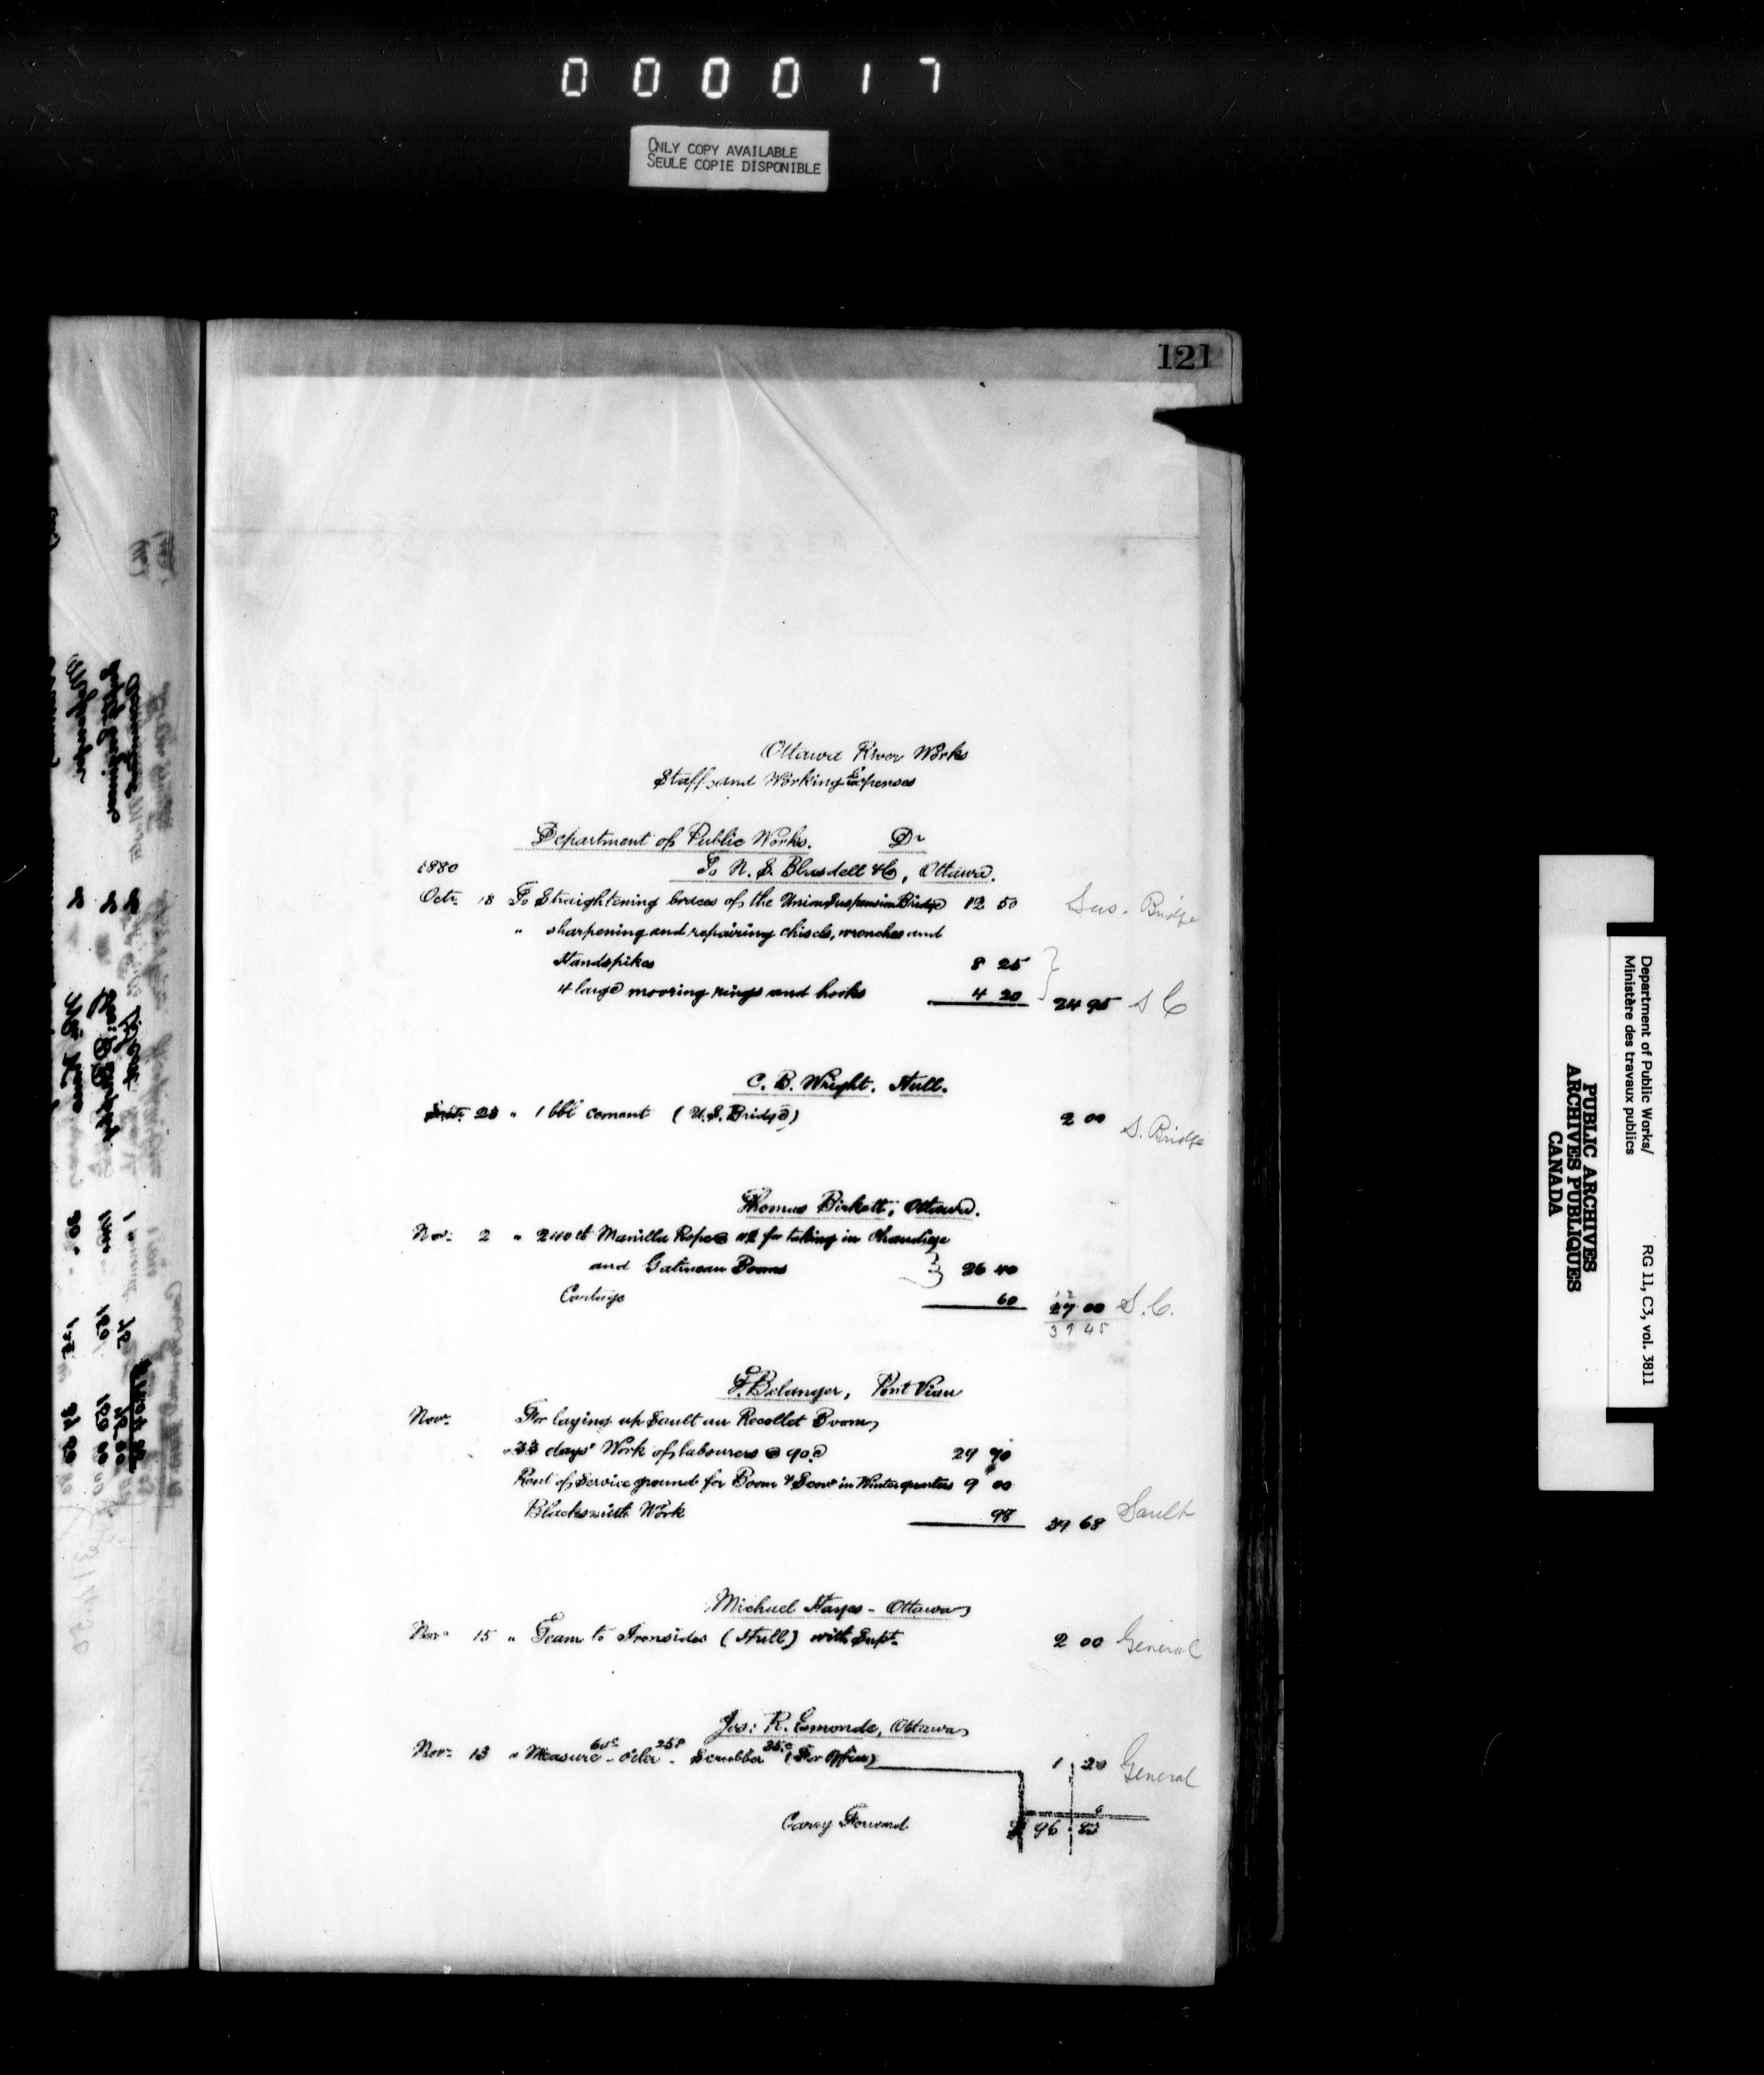 0 0 0 0 1 7
ONLY COPY AVAILABLE
SEULE COPIE DISPONIBLE
121
Ottawa River Works
Staff and Working Expenses
Department of Public Works. Dr
1880 To N. S. Blasdell & Co, Ottawa.
Octr. 18 To Straightening braces of the Union Suspension Bridge 12 50 Sus. Bridge
" sharpening and repairing chisels, wrenches and
Handspikes 8 25
4 large mooring rings and hooks 4 20 24 95 S C
C. B. Wright. Hull.
23 " 1 bbl cement (U.S. Bridge) 2 00 S. Bridge
Thomas Birkett, Ottawa.
Nov: 2 " 240 lb Manilla Rope @ 11c for taking in Chaudiere
and Gatineau Booms 26 40
Cartage 60 27 00 S.C.
12
39 45
F. Belanger, Pont Viau
Novr. For laying up Sault au Recollet Boom,
" 33 days' Work of labourers @ 90c 29 70
Rent of Service ground for Boom & Scow in Winter quarters 9 00
Blacksmith Work 98 39 68 Sault
Michael Hayes - Ottawa
Novr 15 " Team to Ironsides (Hull) with Supt. 2 00 General
Jos: R. Esmonde, Ottawa
Novr 13 " Measure 60c - Oiler 25c - Scrubber 35c (For Office) 1 20 General
Carry Forward $ 96 83
Department of Public Works/
Ministère des travaux publics
RG 11, C3, vol. 3811
PUBLIC ARCHIVES
ARCHIVES PUBLIQUES
CANADA